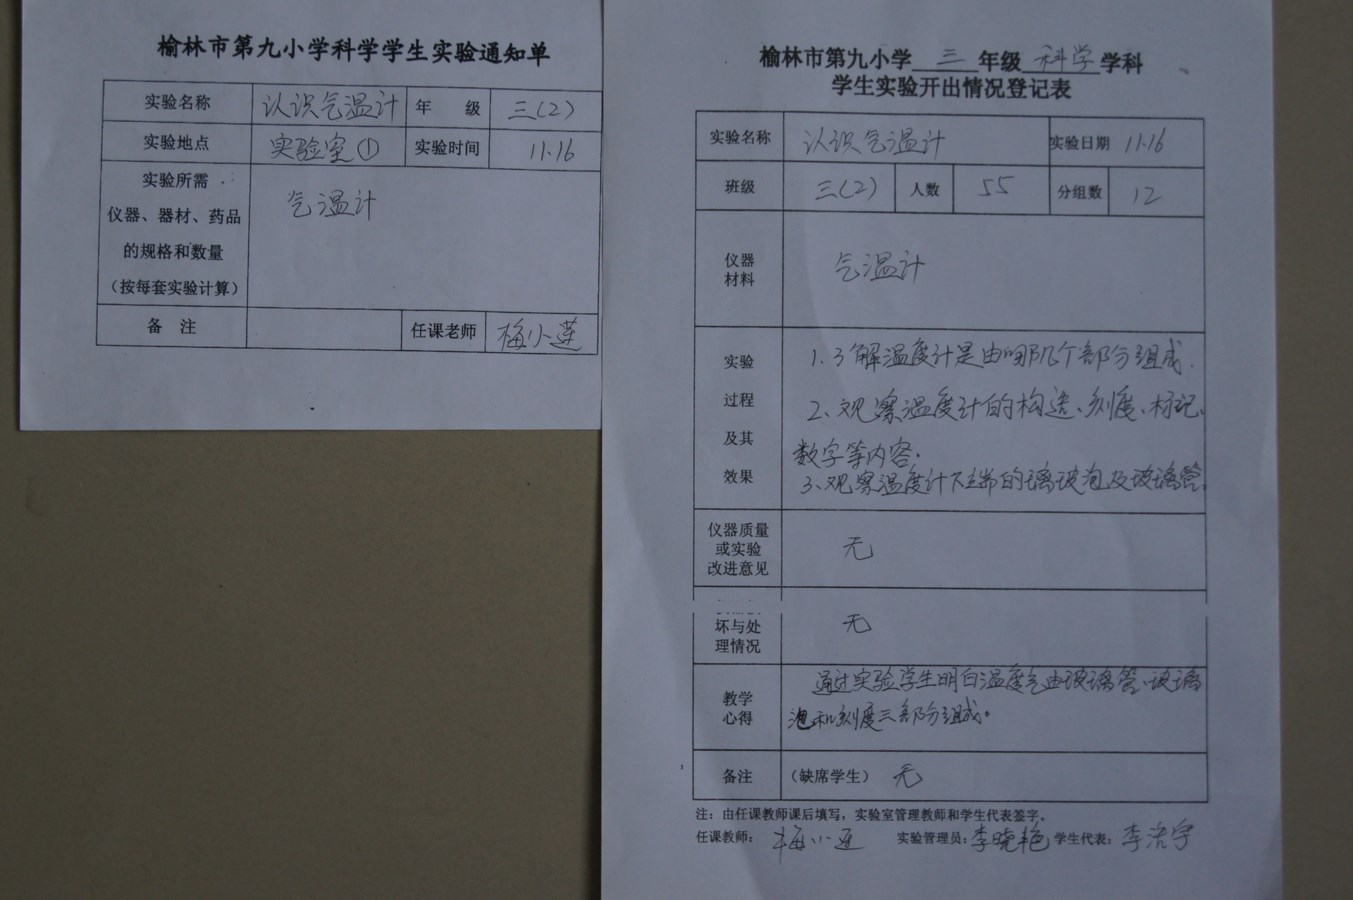 榆林市第九小学科学学生实验通知单
实验名称 认识气温计 年 级 三(2)
实验地点 实验室① 实验时间 11.16
实验所需
仪器、器材、药品
的规格和数量
（按每套实验计算）
气温计
备 注 任课老师 梅小莲
榆林市第九小学 三 年级 科学 学科
学生实验开出情况登记表
实验名称 认识气温计 实验日期 11.16
班级 三(2) 人数 55 分组数 12
仪器
材料
气温计
实验
过程
及其
效果
1.了解温度计是由哪几个部分组成.
2、观察温度计的构造、刻度、标记、
数字等内容.
3、观察温度计下端的璃玻泡及玻璃管.
仪器质量
或实验
改进意见
无
坏与处
理情况
无
教学
心得
通过实验学生明白温度气由玻璃管、玻璃
泡和刻度三部分组成。
备注 （缺席学生） 无
注：由任课教师课后填写，实验室管理教师和学生代表签字。
任课教师： 梅小莲 实验管理员：李晓艳 学生代表：李浩宇